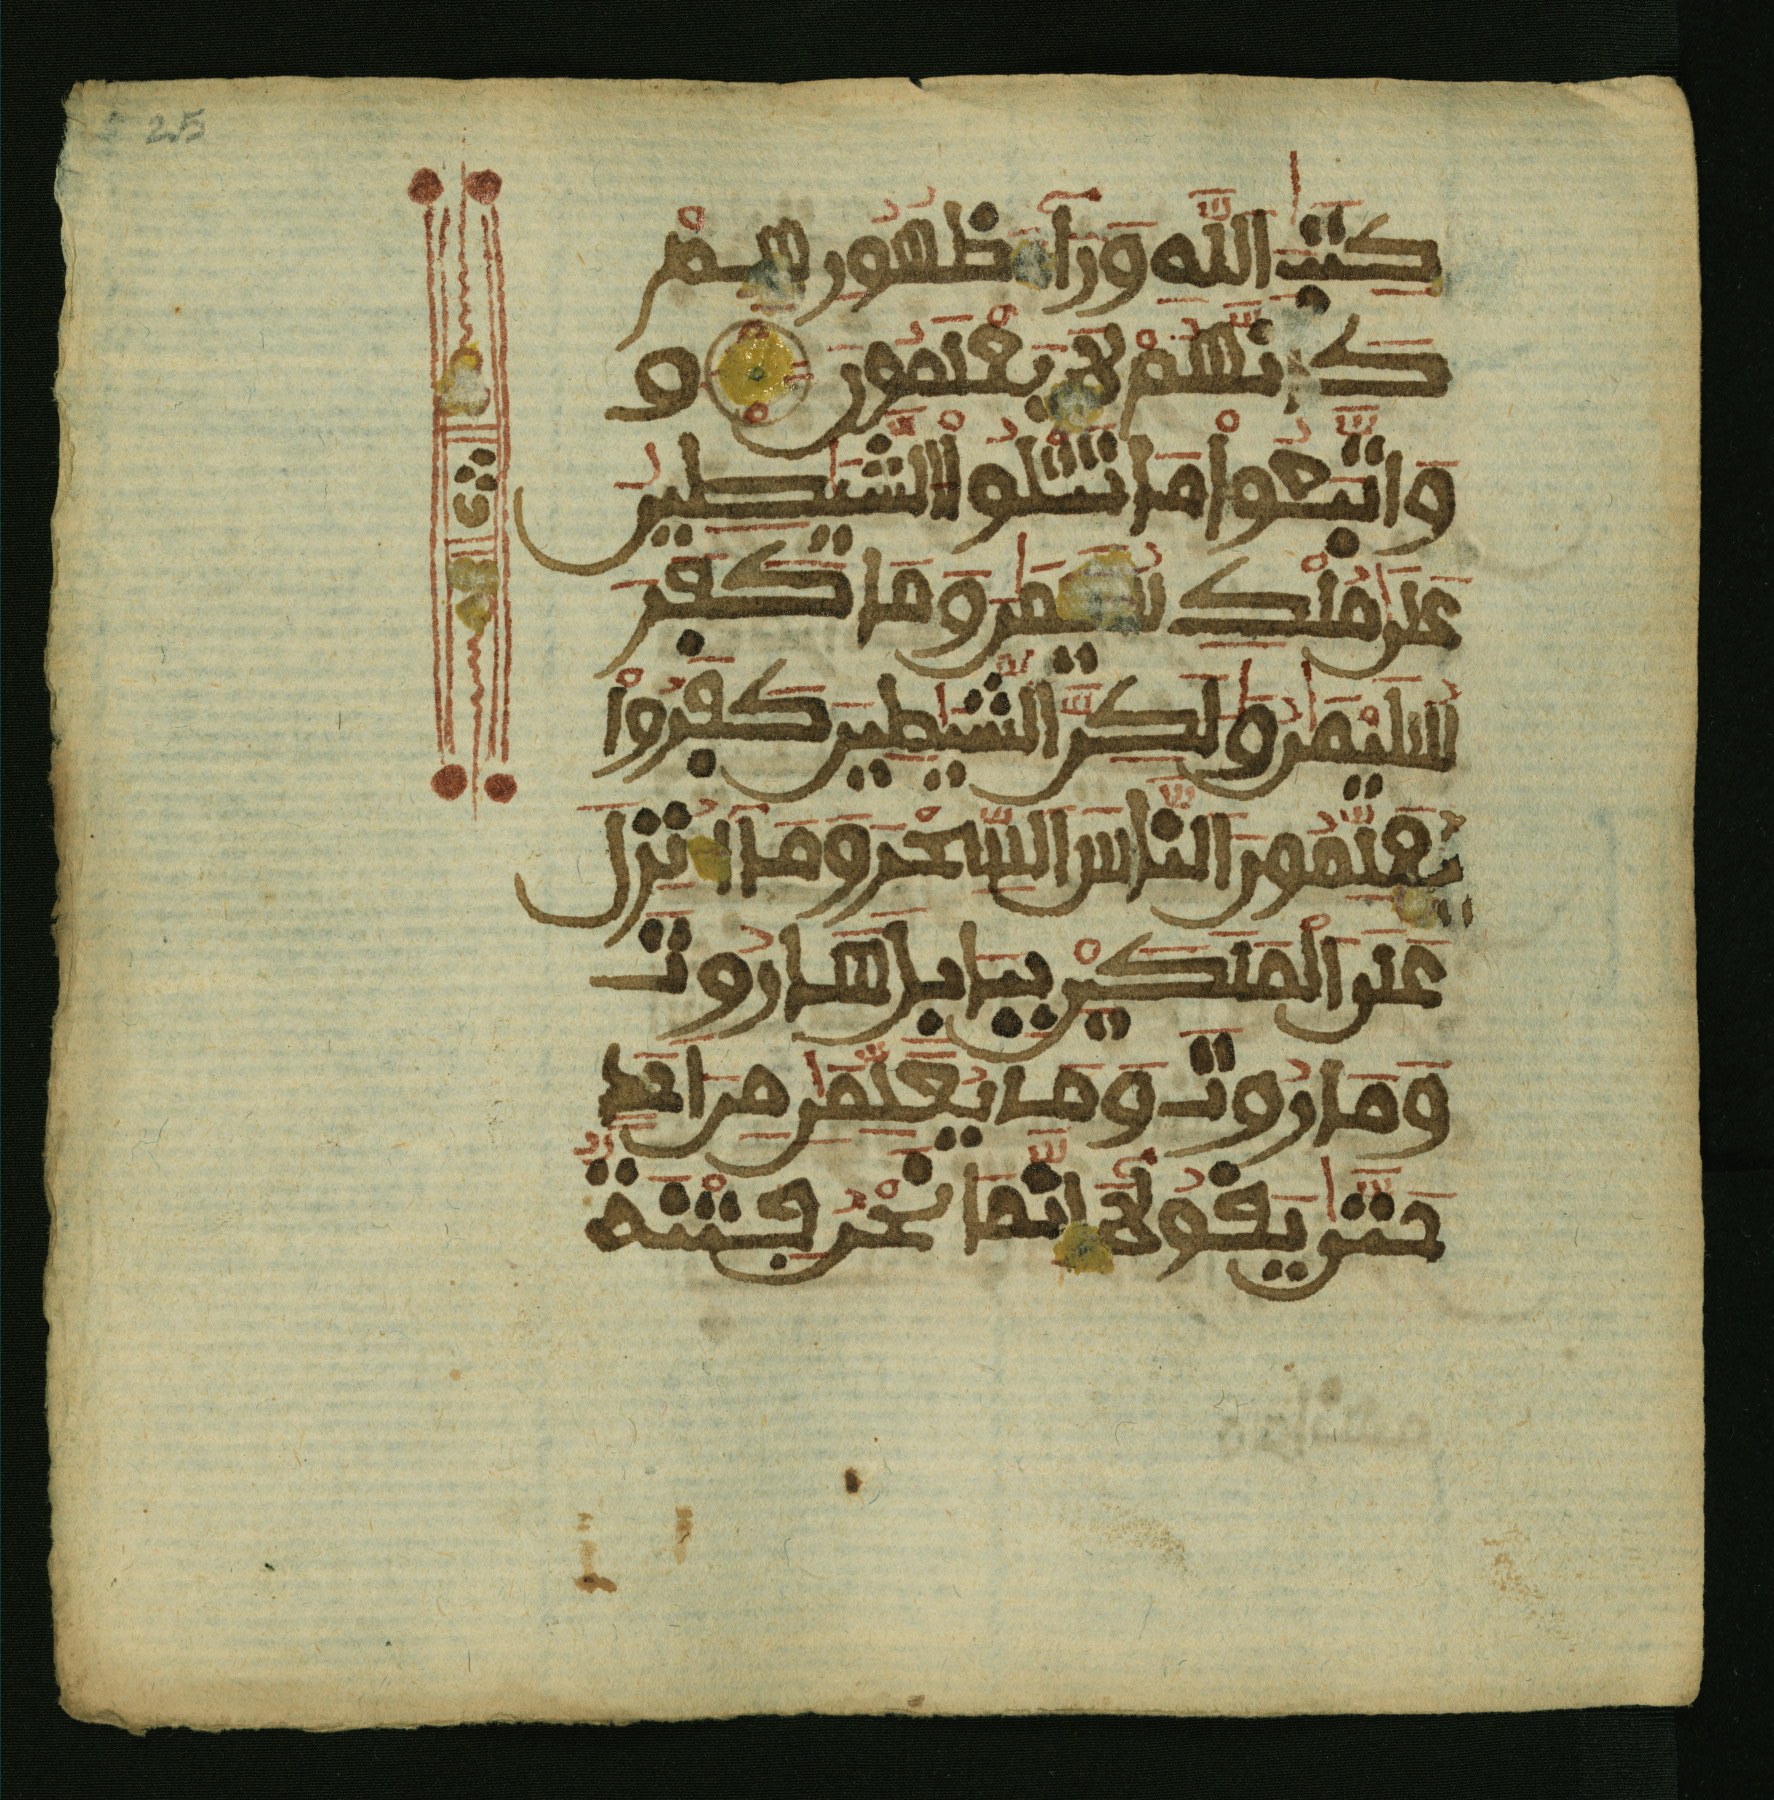 25
كِتَٰبَ اللَّهِ وَرَآءَ ظُهُورِهِمْ
كَأَنَّهُمْ لَا يَعْلَمُونَ و
وَاتَّبَعُواْ مَا تَتْلُواْ الشَّيَٰطِينُ
عَلَىٰ مُلْكِ سُلَيْمَٰنَ وَمَا كَفَرَ
سُلَيْمَٰنُ وَلَٰكِنَّ الشَّيَٰطِينَ كَفَرُواْ
يُعَلِّمُونَ النَّاسَ السِّحْرَ وَمَآ أُنزِلَ
عَلَى الْمَلَكَيْنِ بِبَابِلَ هَارُوتَ
وَمَارُوتَ وَمَا يُعَلِّمَٰنِ مِنَ احَدٍ
حَتَّىٰ يَقُولَآ إِنَّمَا نَحْنُ فِتْنَةٌ